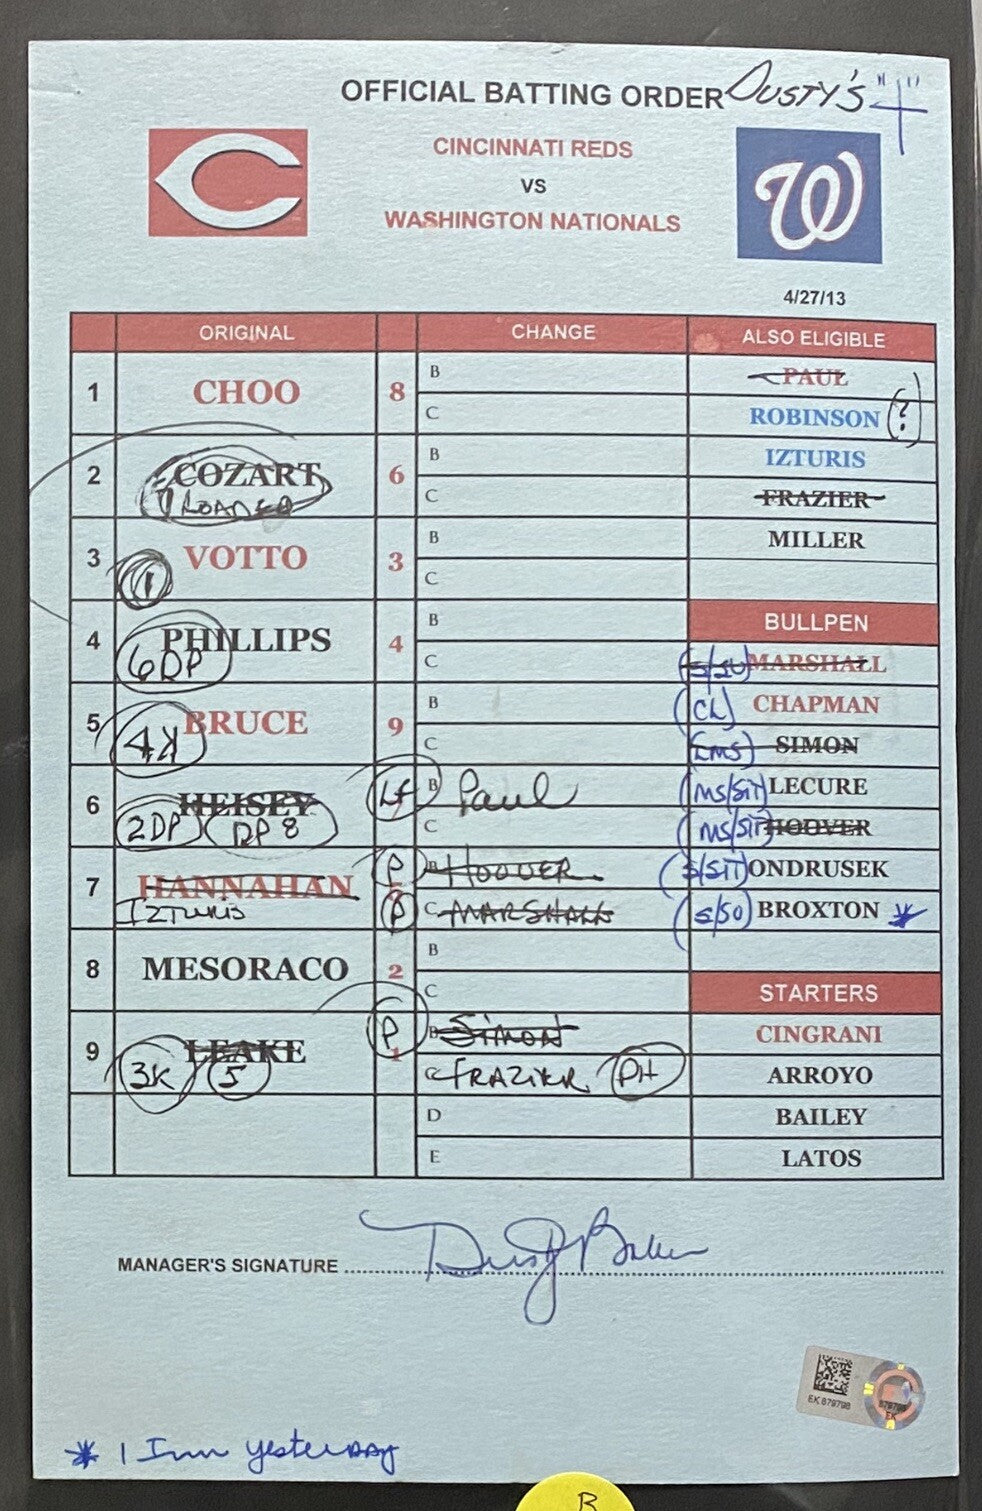 OFFICIAL BATTING ORDER DUSTY'S
CINCINNATI REDS
VS
WASHINGTON NATIONALS
C
W
4/27/13
ORIGINAL CHANGE ALSO ELIGIBLE
1 CHOO 8 B PAUL
C ROBINSON (?)
2 COZART 6 B IZTURIS
LOADED C FRAZIER
3 VOTTO 3 B MILLER
1 C
BULLPEN
4 PHILLIPS 4 B
6DP C MARSHALL
5 BRUCE 9 B (CL) CHAPMAN
4K C (LMS) SIMON
6 HEISEY LF B Paul (MS/SIT) LECURE
2DP DP 8 C (MS/SIT) HOOVER
7 HANNAHAN P B HOOVER (S/SIT) ONDRUSEK
IZTURIS P C MARSHALL (S/SU) BROXTON *
8 MESORACO 2 B
C STARTERS
9 LEAKE P B SIMON CINGRANI
3K 5 1 C FRAZIER PH ARROYO
D BAILEY
E LATOS
MANAGER'S SIGNATURE Dusty Baker
EK 879798
879798
EK
* 1 Inn yesterday
B